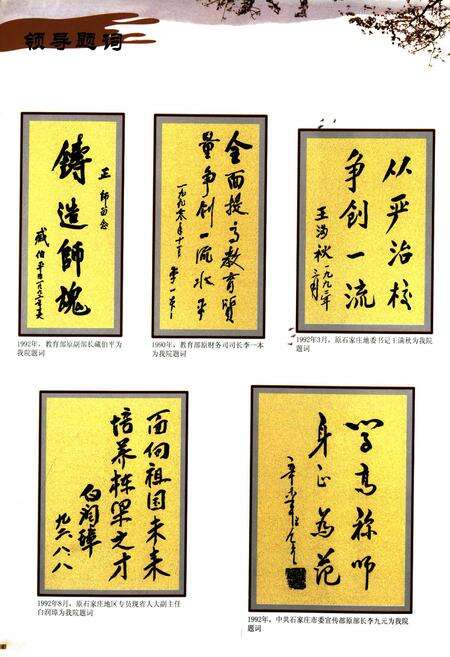 领导题词
铸造师魂
臧伯平
1992年，教育部原副部长臧伯平为
我院题词
全面提高教育质
量争创一流水平
一九九〇年十一月
李一本
1990年，教育部原财务司司长李一本
为我院题词
从严治校
争创一流
王满秋
一九九二年
三月
1992年3月，原石家庄地委书记王满秋为我院
题词
面向祖国未来
培养栋梁之才
白润璋
九二.八.八
1992年8月，原石家庄地区专员现省人大副主任
白润璋为我院题词
学高为师
身正为范
1992年，中共石家庄市委宣传部原部长李九元为我院
题词